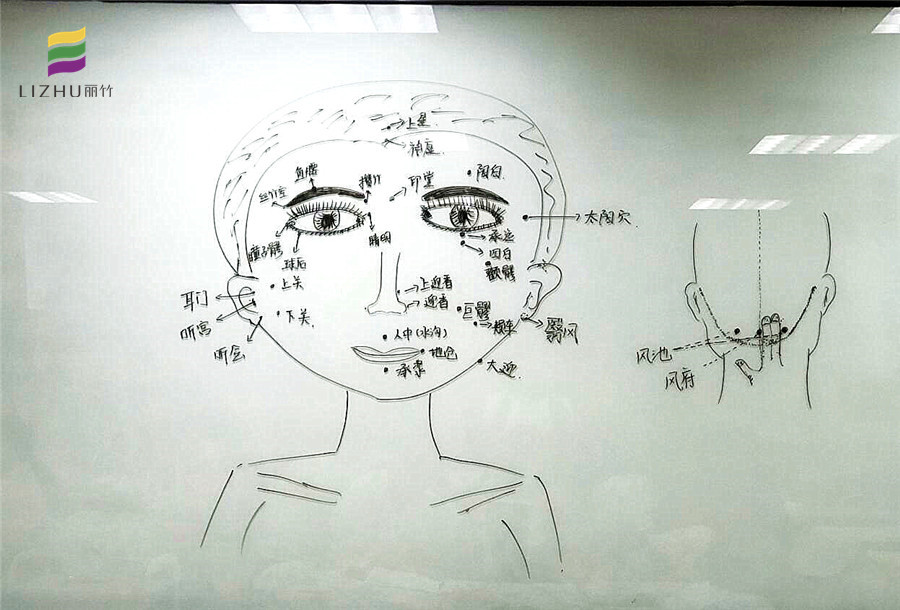 LIZHU丽竹
上星
神庭
鱼腰
攒竹
印堂
阳白
丝竹空
太阳穴
瞳子髎
球后
睛明
承泣
四白
颧髎
上关
上迎香
耳门
迎香
巨髎
听宫
下关
颊车
翳风
听会
人中(水沟)
地仓
承浆
大迎
风池
风府